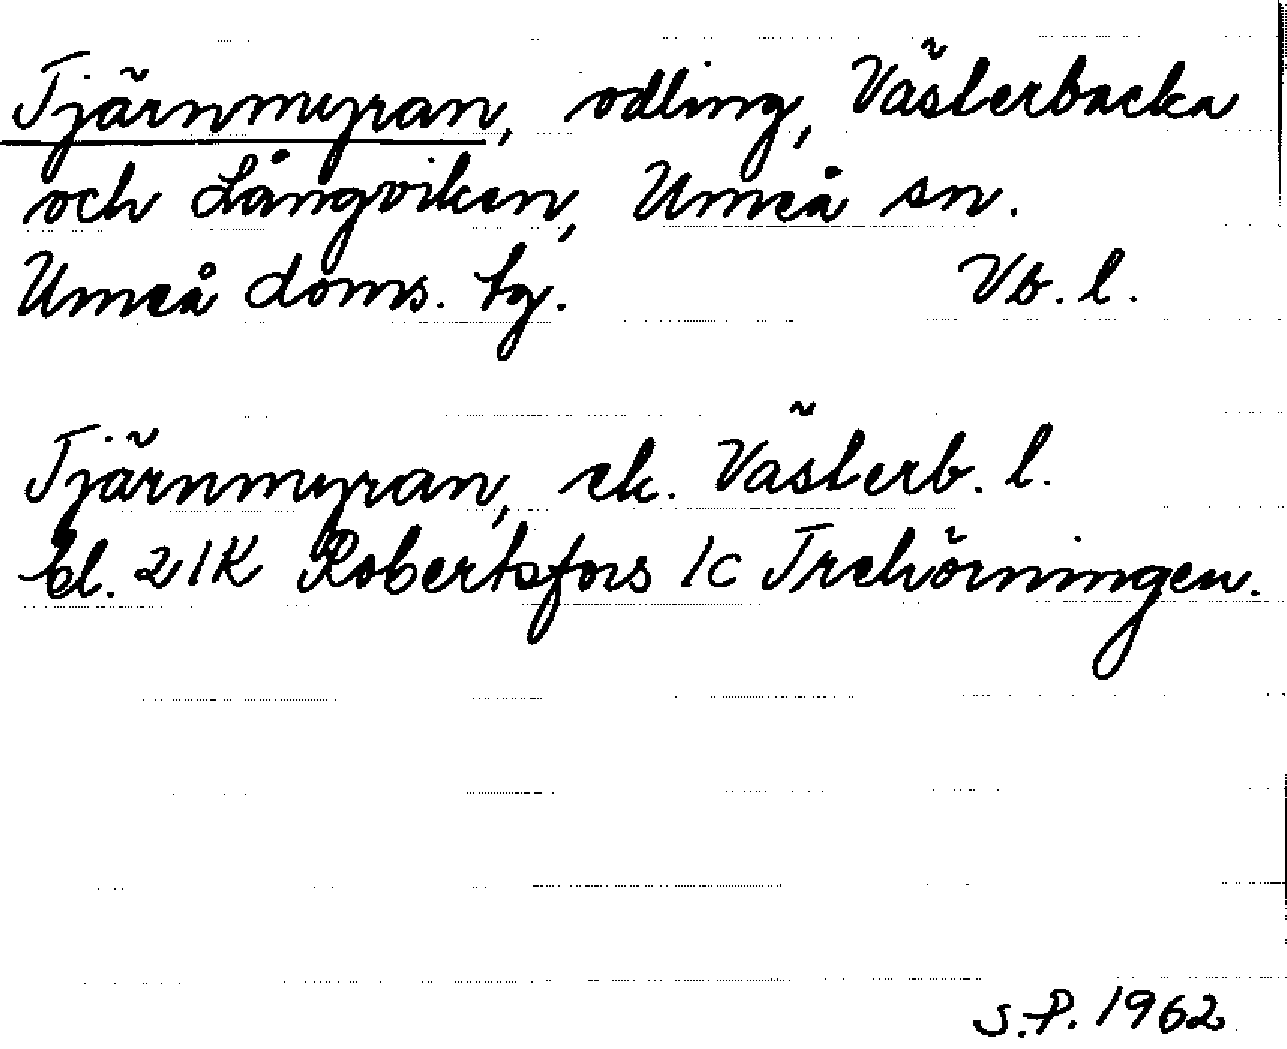 Tjärnmyran, odling, Västerbacka
och Långviken, Umeå sn.
Umeå doms. tg. Vb. l.
Tjärnmyran, ek. Västerb. l.
bl. 21K Robertsfors 1c Trehörningen.
S.P. 1962